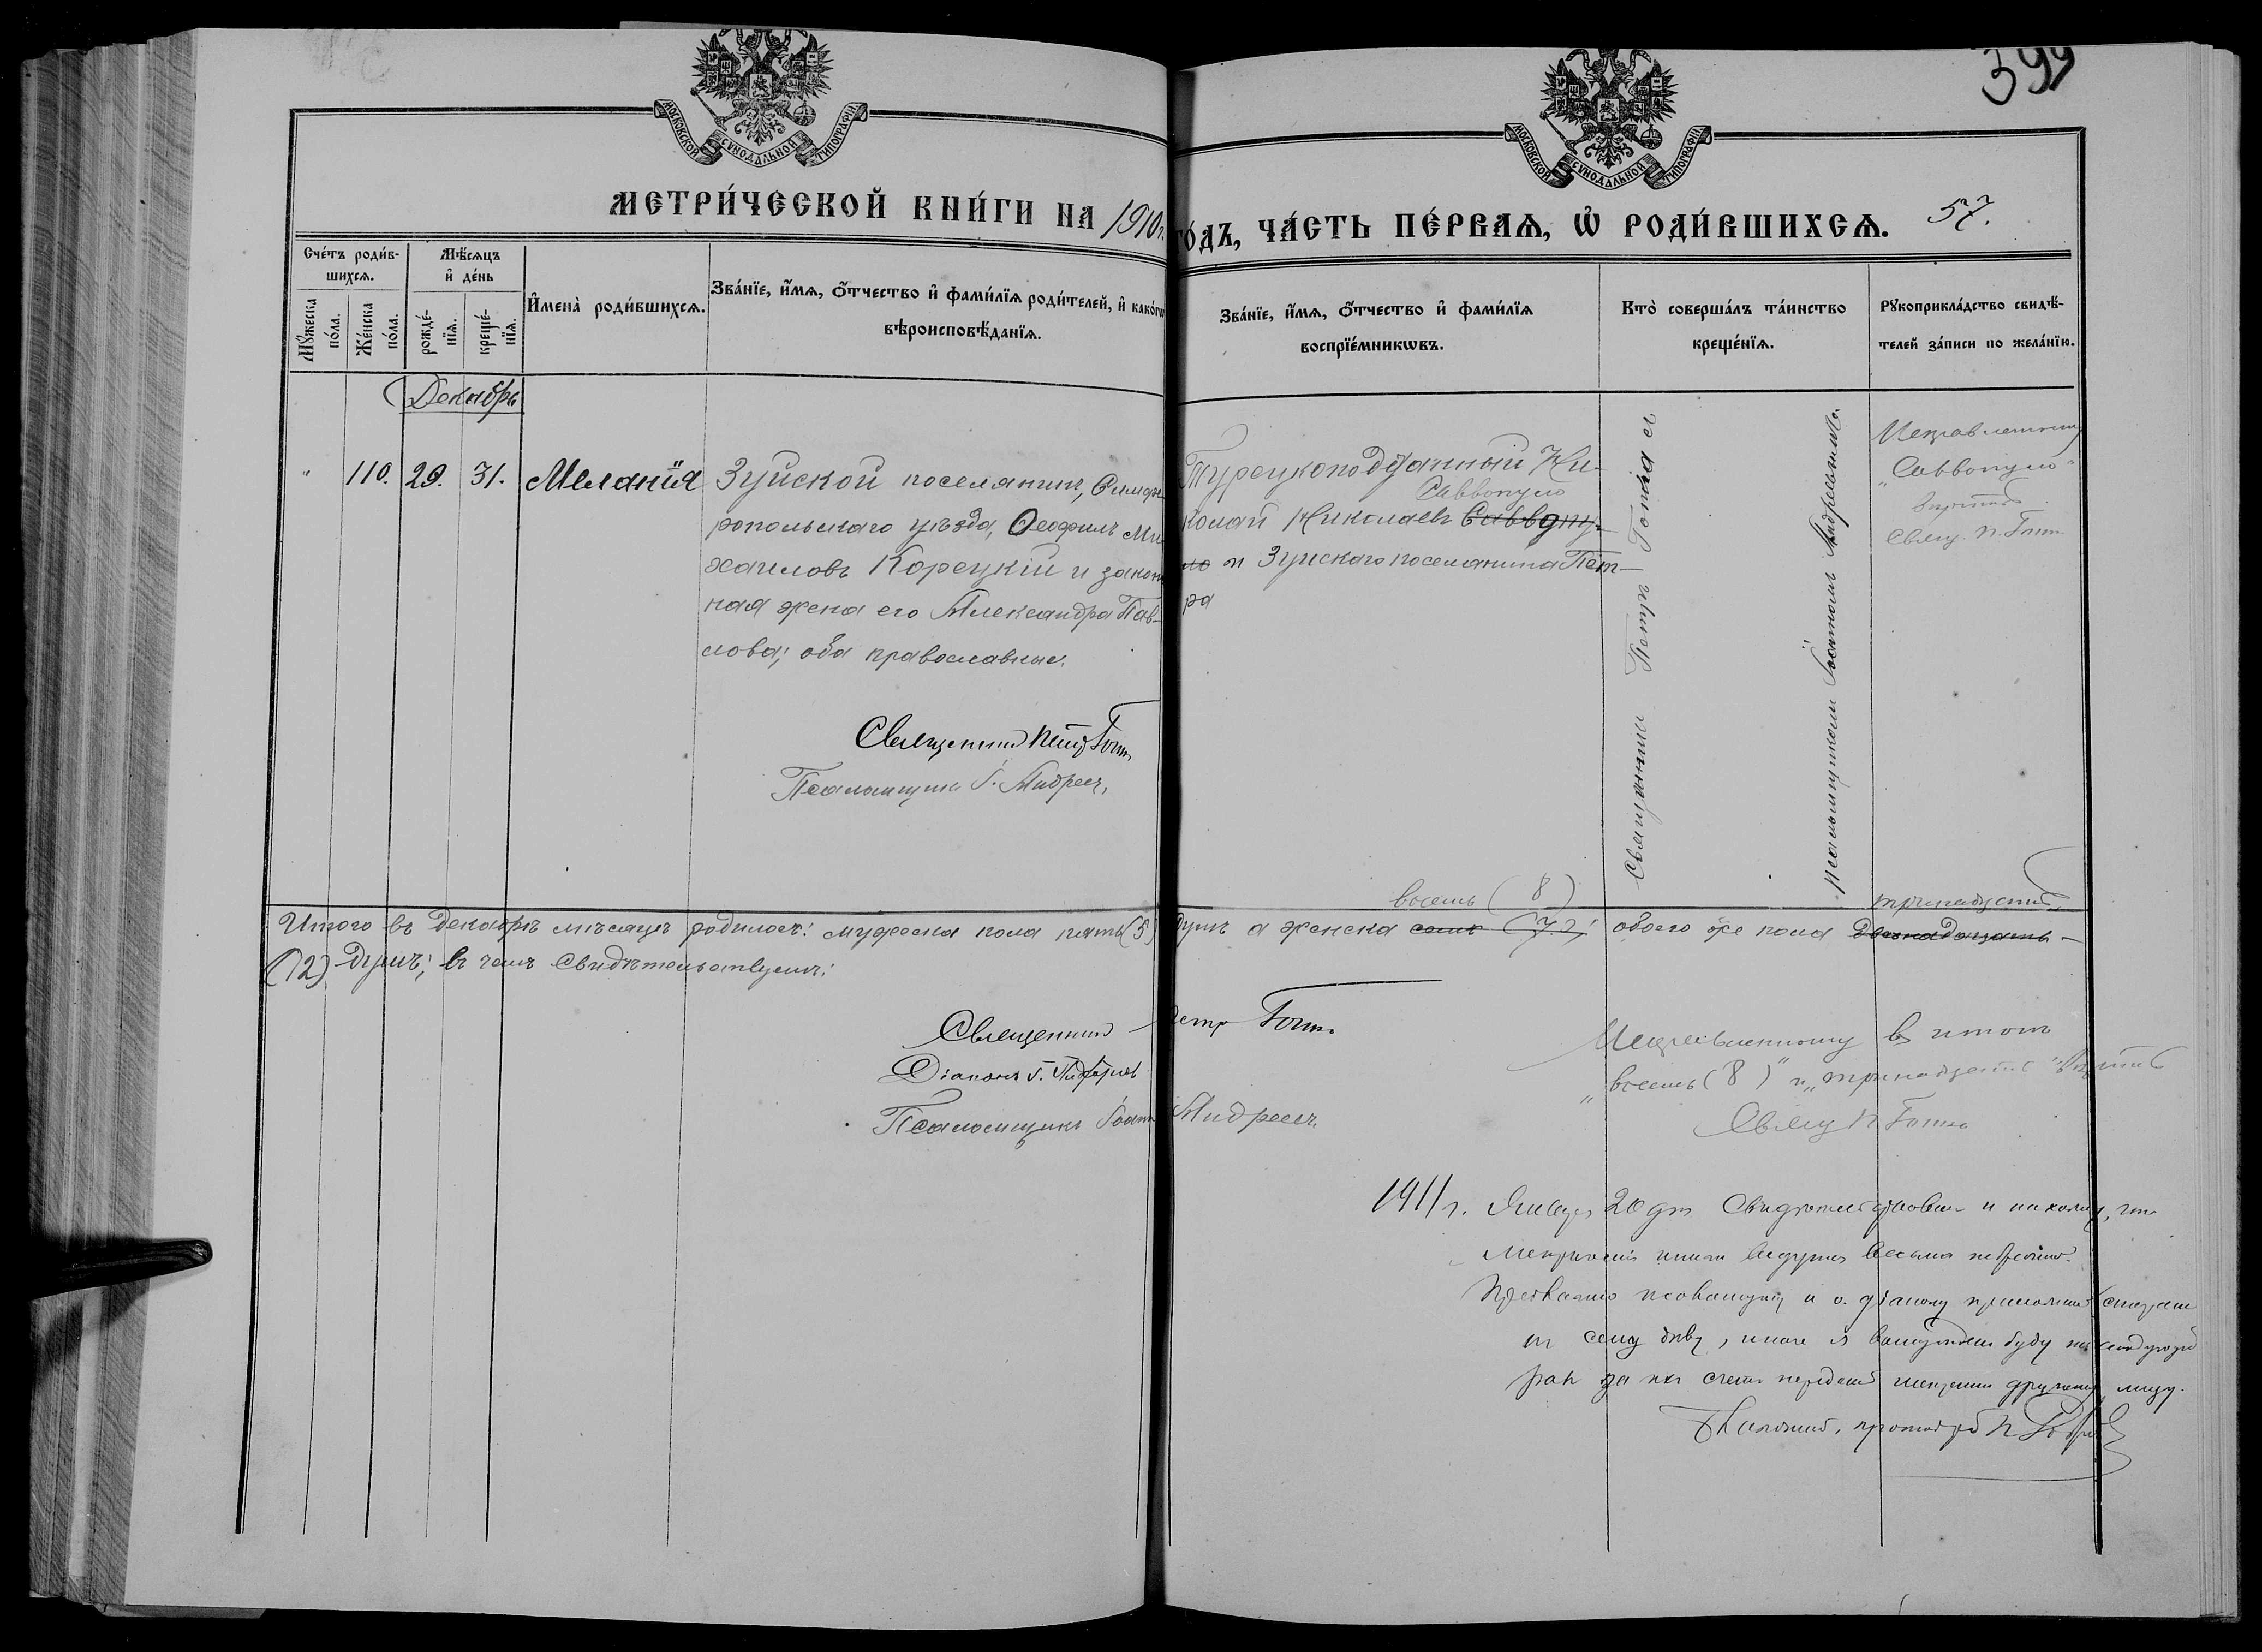 399
МОСКОВСКОЙ СѴНОДАЛЬНОЙ ТИПОГРАФІИ
МОСКОВСКОЙ СѴНОДАЛЬНОЙ ТИПОГРАФІИ
МЕТРИ́ЧЕСКОЙ КНИ́ГИ НА 1910 г.
ГО́ДЪ, ЧА́СТЬ ПЕ́РВАѦ, Ѡ҆ РОДИ́ВШИХСѦ. 57.
Сче́тъ роди́в-
шихсѧ.
Мꙋ́жеска
по́ла.
Же́нска
по́ла.
Мѣ́сѧцъ
и҆ де́нь
рожде́-
нїѧ.
креще́-
нїѧ.
И҆мена̀ роди́вшихсѧ.
Зва́нїе, и҆́мѧ, ѻ҆́тчество и҆ фами́лїѧ роди́телей, и҆ како́гѡ
вѣроисповѣ́данїѧ.
Зва́нїе, и҆́мѧ, ѻ҆́тчество и҆ фами́лїѧ
воспрїе́мникѡвъ.
Кто̀ соверша́лъ та́инство
креще́нїѧ.
Рꙋкоприкла́дство свидѣ́-
телей за́писи по жела́нїю.
Декабрь
" 110. 29. 31. Меланія
Зуйской поселянинъ, Симфе-
ропольскаго уѣзда, Ѳеофилъ Ми-
хаиловъ Корецкій и закон-
ная жена его Александра Пав-
лова; оба православные.
Священник Петр Готи
Псаломщикъ І. Андреев
Турецкоподданный Ни-
Саввопуло
колай Николаевъ Саввопу-
ло и Зуйскаго поселянина Пет-
ра
Священникъ Петръ Готіа съ
псаломщикомъ Андреевымъ
Исправленному
"Саввопуло"
вѣрить
Свящ. П. Готи
восемь (8)
тринадцать
Итого въ Декабрѣ мѣсяцѣ родилось: мужеска пола пять (5) душъ а женска семь (7); обоего же пола двѣнадцать —
(12) душъ; въ чемъ свидѣтельствуемъ:
Священник Петр Готи
Діаконъ
Псаломщикъ Андреев
Исправленному въ итогѣ
"восемь (8)" и "тринадцать" вѣрить
Свящ П Готи
1911 г. Января 20 дня Свидѣтельствовалъ и нахожу, что
метрическія книги ведутся весьма небрежно.
псаломщику и о. діакону
къ сему дѣлу, иначе я вынужденъ буду на слѣдующій
раз за их счетъ передать другому лицу.
Благочинный, протоіерей П